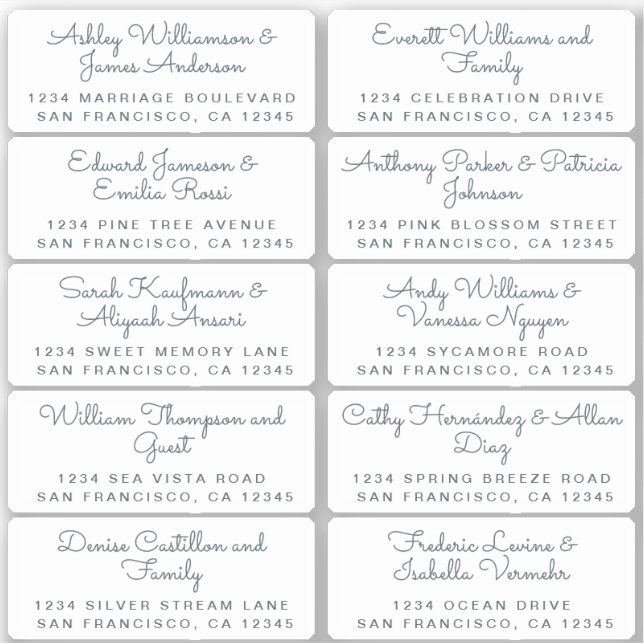 Ashley Williamson &
James Anderson
1234 MARRIAGE BOULEVARD
SAN FRANCISCO, CA 12345
Everett Williams and
Family
1234 CELEBRATION DRIVE
SAN FRANCISCO, CA 12345
Edward Jameson &
Emilia Rossi
1234 PINE TREE AVENUE
SAN FRANCISCO, CA 12345
Anthony Parker & Patricia
Johnson
1234 PINK BLOSSOM STREET
SAN FRANCISCO, CA 12345
Sarah Kaufmann &
Aliyaah Ansari
1234 SWEET MEMORY LANE
SAN FRANCISCO, CA 12345
Andy Williams &
Vanessa Nguyen
1234 SYCAMORE ROAD
SAN FRANCISCO, CA 12345
William Thompson and
Guest
1234 SEA VISTA ROAD
SAN FRANCISCO, CA 12345
Cathy Hernández & Allan
Diaz
1234 SPRING BREEZE ROAD
SAN FRANCISCO, CA 12345
Denise Castillon and
Family
1234 SILVER STREAM LANE
SAN FRANCISCO, CA 12345
Frederic Levine &
Isabella Vermehr
1234 OCEAN DRIVE
SAN FRANCISCO, CA 12345